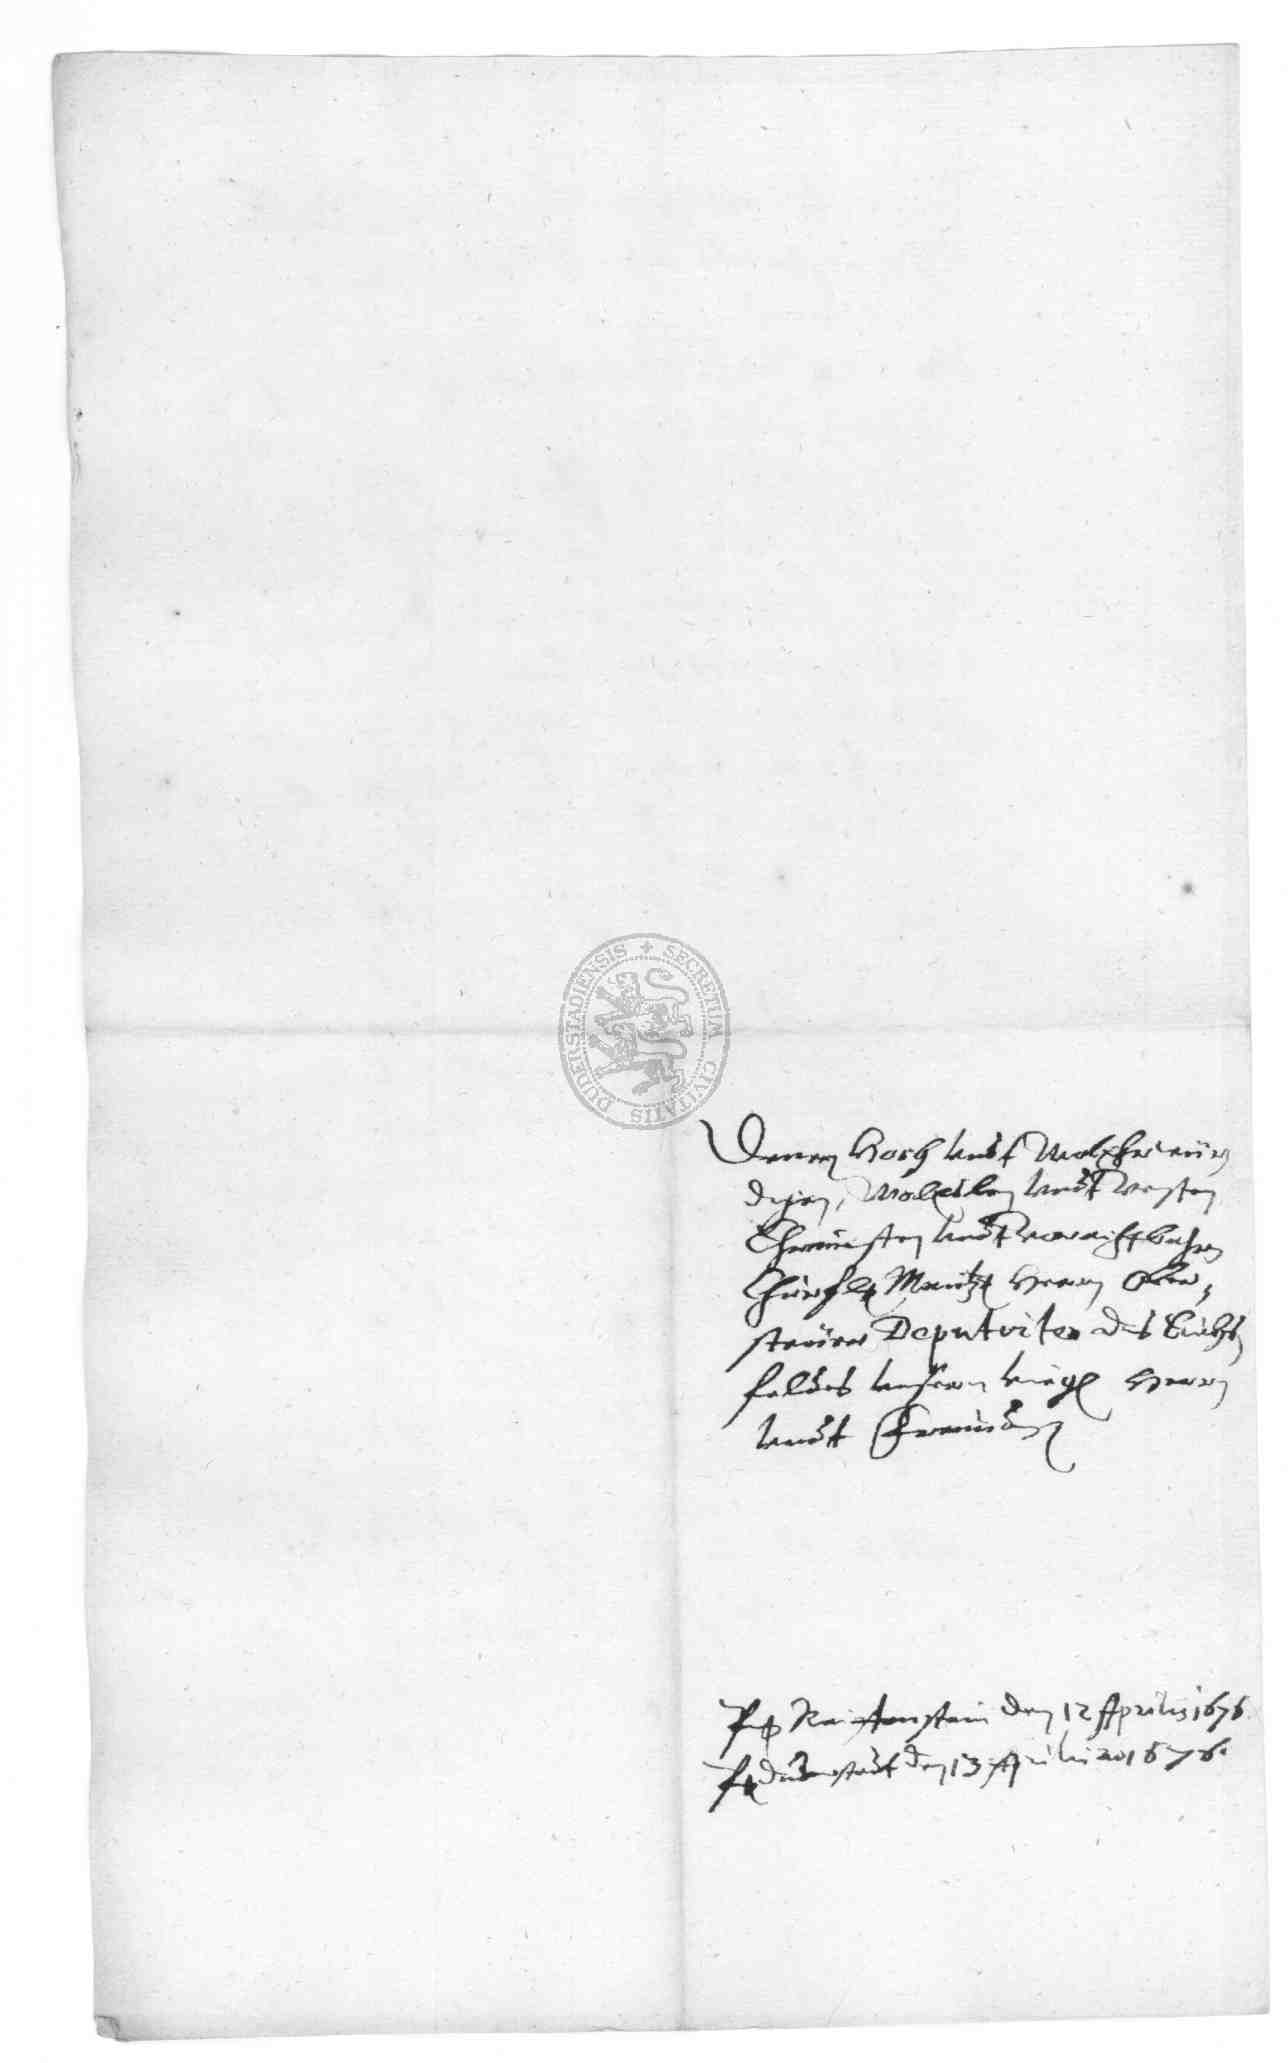 SECRETUM CIVITATIS DUDERSTADIENSIS
Denen Hoch undt Wolehrwür
digen, Woledlen undt Vesten
Ehrnuesten undt vorachtbahrn
Churfl. Maintz. Herrn Ober,
steüer Deputirten des Eichs
feldes unsern herrn
undt Freunden
Reiffenstein den 12 Aprilis 1676.
Duderstadt den 13 Aprilis ao 1676.